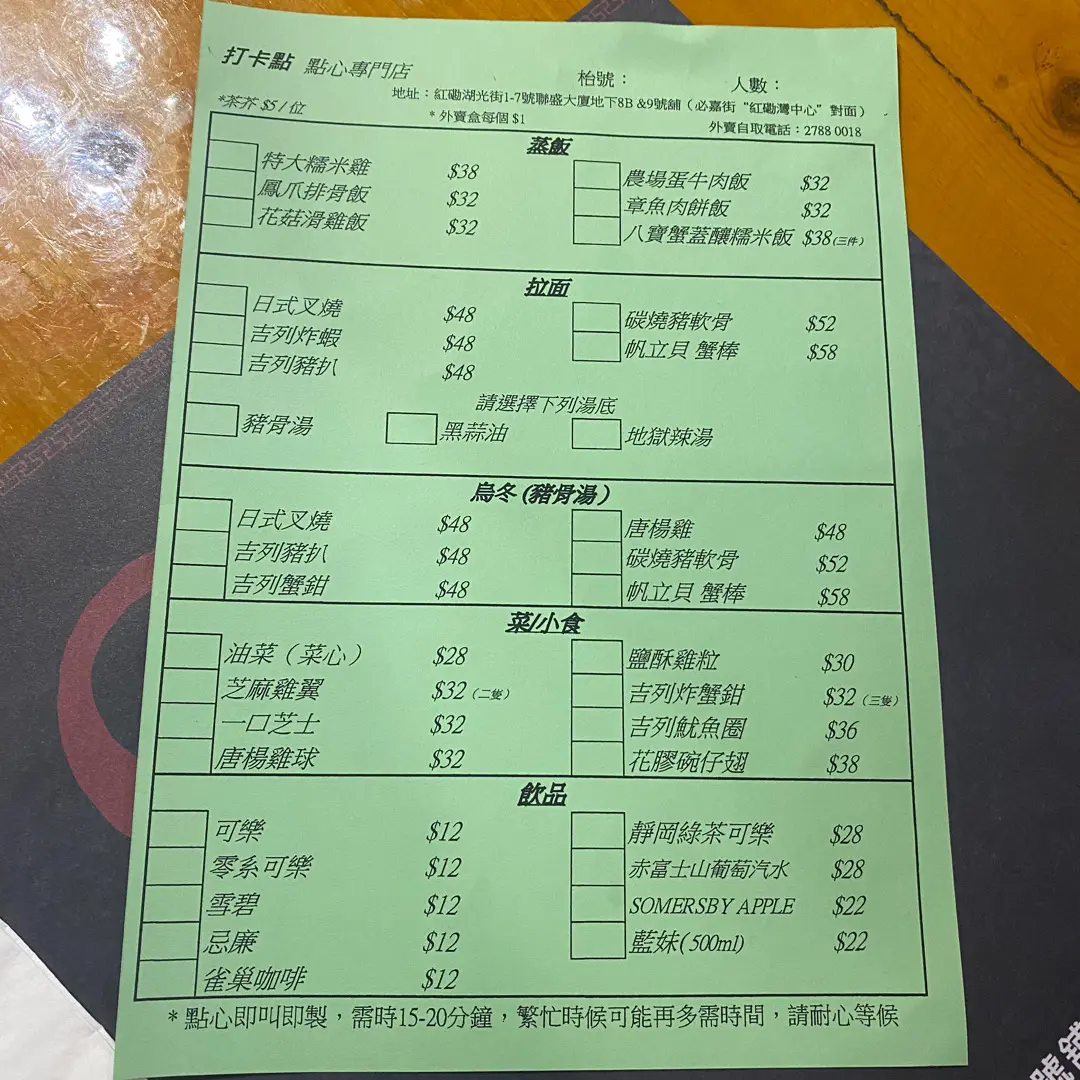 打卡點 點心專門店
枱號： 人數：
地址：紅磡湖光街1-7號聯盛大廈地下8B &9號舖（必嘉街“紅磡灣中心”對面）
*茶芥 $5/位 *外賣盒每個 $1 外賣自取電話：2788 0018
蒸飯
特大糯米雞 $38 農場蛋牛肉飯 $32
鳳爪排骨飯 $32 章魚肉餅飯 $32
花菇滑雞飯 $32 八寶蟹蓋釀糯米飯 $38(三件)
拉面
日式叉燒 $48 碳燒豬軟骨 $52
吉列炸蝦 $48 帆立貝 蟹棒 $58
吉列豬扒 $48
請選擇下列湯底
豬骨湯 黑蒜油 地獄辣湯
烏冬 (豬骨湯）
日式叉燒 $48 唐楊雞 $48
吉列豬扒 $48 碳燒豬軟骨 $52
吉列蟹鉗 $48 帆立貝 蟹棒 $58
菜/小食
油菜（菜心） $28 鹽酥雞粒 $30
芝麻雞翼 $32（二隻） 吉列炸蟹鉗 $32（三隻）
一口芝士 $32 吉列魷魚圈 $36
唐楊雞球 $32 花膠碗仔翅 $38
飲品
可樂 $12 靜岡綠茶可樂 $28
零系可樂 $12 赤富士山葡萄汽水 $28
雪碧 $12 SOMERSBY APPLE $22
忌廉 $12 藍妹(500ml) $22
雀巢咖啡 $12
*點心即叫即製，需時15-20分鐘，繁忙時候可能再多需時間，請耐心等候